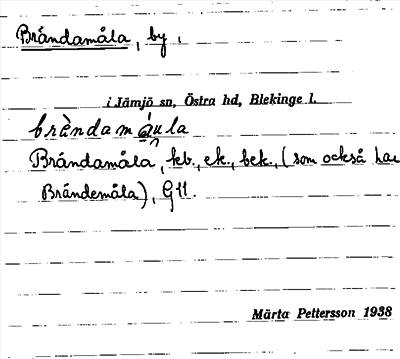 Brändamåla, by.
i Jämjö sn, Östra hd, Blekinge l.
Brändamåla, kb., ek., bek., (som också har
Brändemåla), G11.
Märta Pettersson 1938